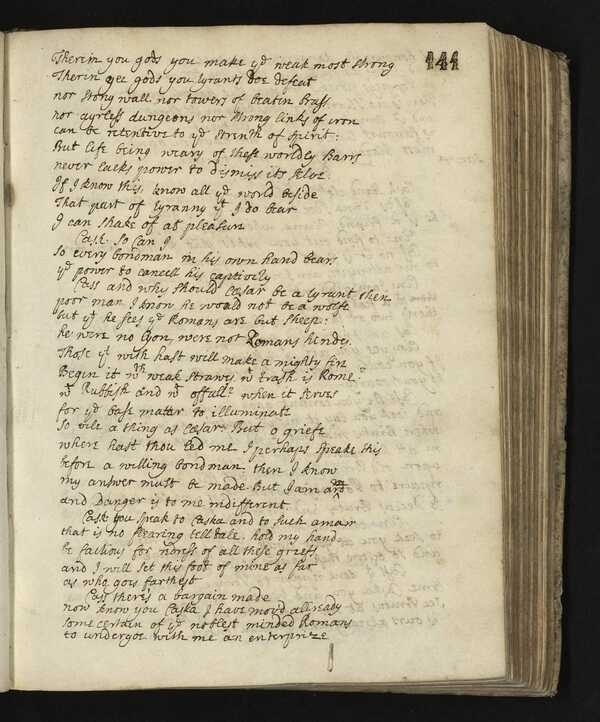 141
Therein you gods you make ye weak most strong
Therin yee gods you tyrants doe defeat
nor stony wall nor towers of beaten brass
nor ayrless dungeons nor strong links of iron
can be retentive to ye strenth of spirit:
But life being weary of these worldly Barrs
never lacks power to dismiss its selve
If I know this, know all ye world beside
That part of tyranny yt I do bear
I can shake of at pleasure
Cask: So can I
So every bondman in his own hand bears
ye power to cancell his captivity
Cass and why should Cæsar be a tyrant then
poor man I know he would not be a wolfe
but yt he sees ye Romans are but sheep:
he were no Lyon, were not Romans hinds.
Those yt with hast will make a mighty fire
Begin it wth weak straws, wt trash is Rome
wt Rubbish and wt offall? when it serves
for ye base matter to illuminate
So vile a thing as Cæsar? But o griefe
where hast thou led me I perhaps speake this
before a willing bondman, then I know
my answer must be made. But I am
and danger is to me indifferent
Cask you speak to Caska and to such a man
that is no flearing telltale. hold my hand
be factious for of all these griefs
and I will set this foot of mine as far
as who goes farthest
Cass there's a bargain made
now know you Caska I have mov'd allready
some certain of ye noblest minded Romans
to undergoe with me an enterprize